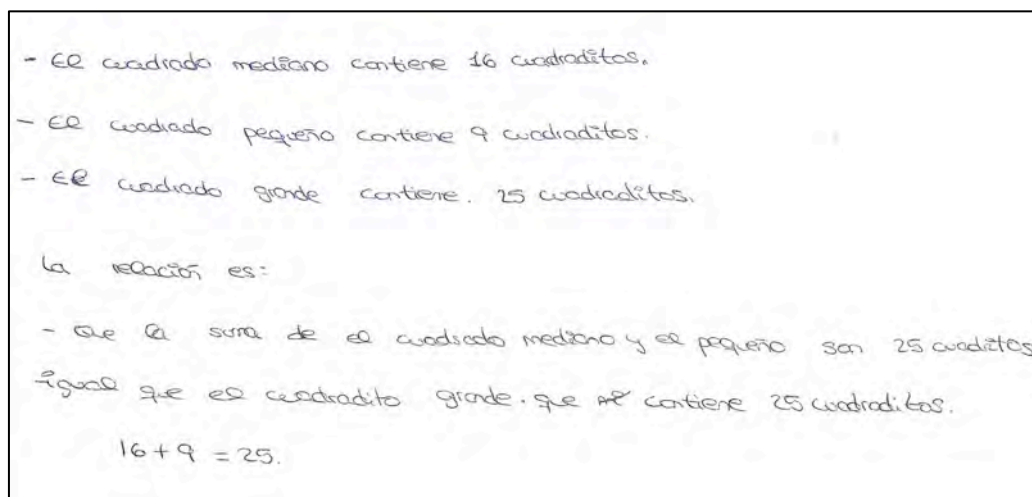 - El cuadrado mediano contiene 16 cuadraditos.
- El cuadrado pequeño contiene 9 cuadraditos.
- El cuadrado grande contiene. 25 cuadraditos.
La relación es:
- Que la suma de el cuadrado mediano y el pequeño son 25 cuaditos
igual que el cuadradito grande. que contiene 25 cuadraditos.
16 + 9 = 25.